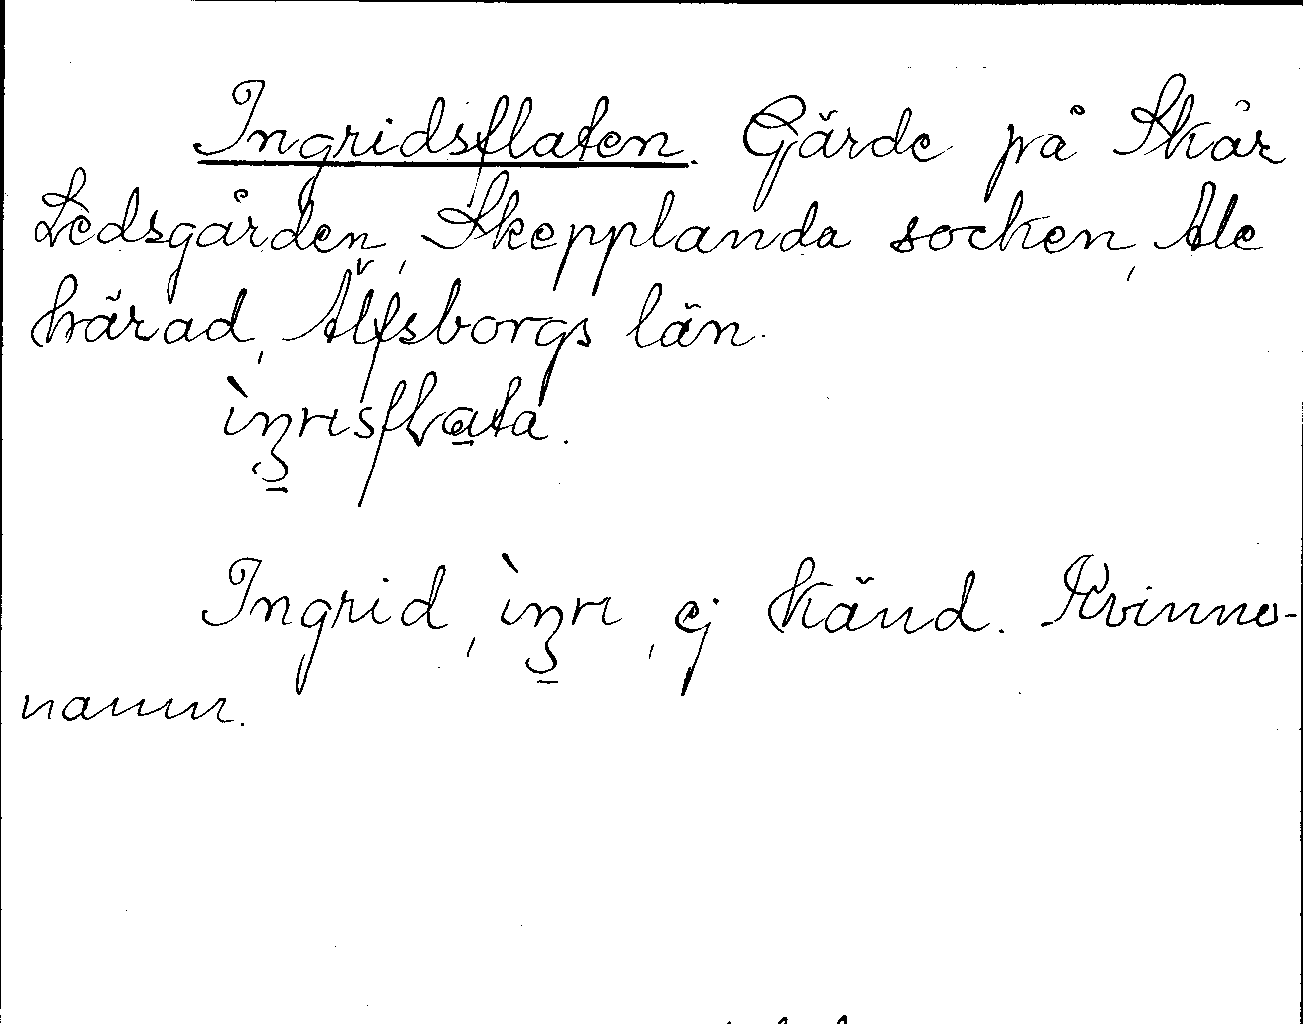 Ingridsflaten. Gärde på Skår
Ledsgården, Skepplanda socken, Ale
härad, Älfsborgs län.
Ingrid, ej känd. Kvinno-
namn.